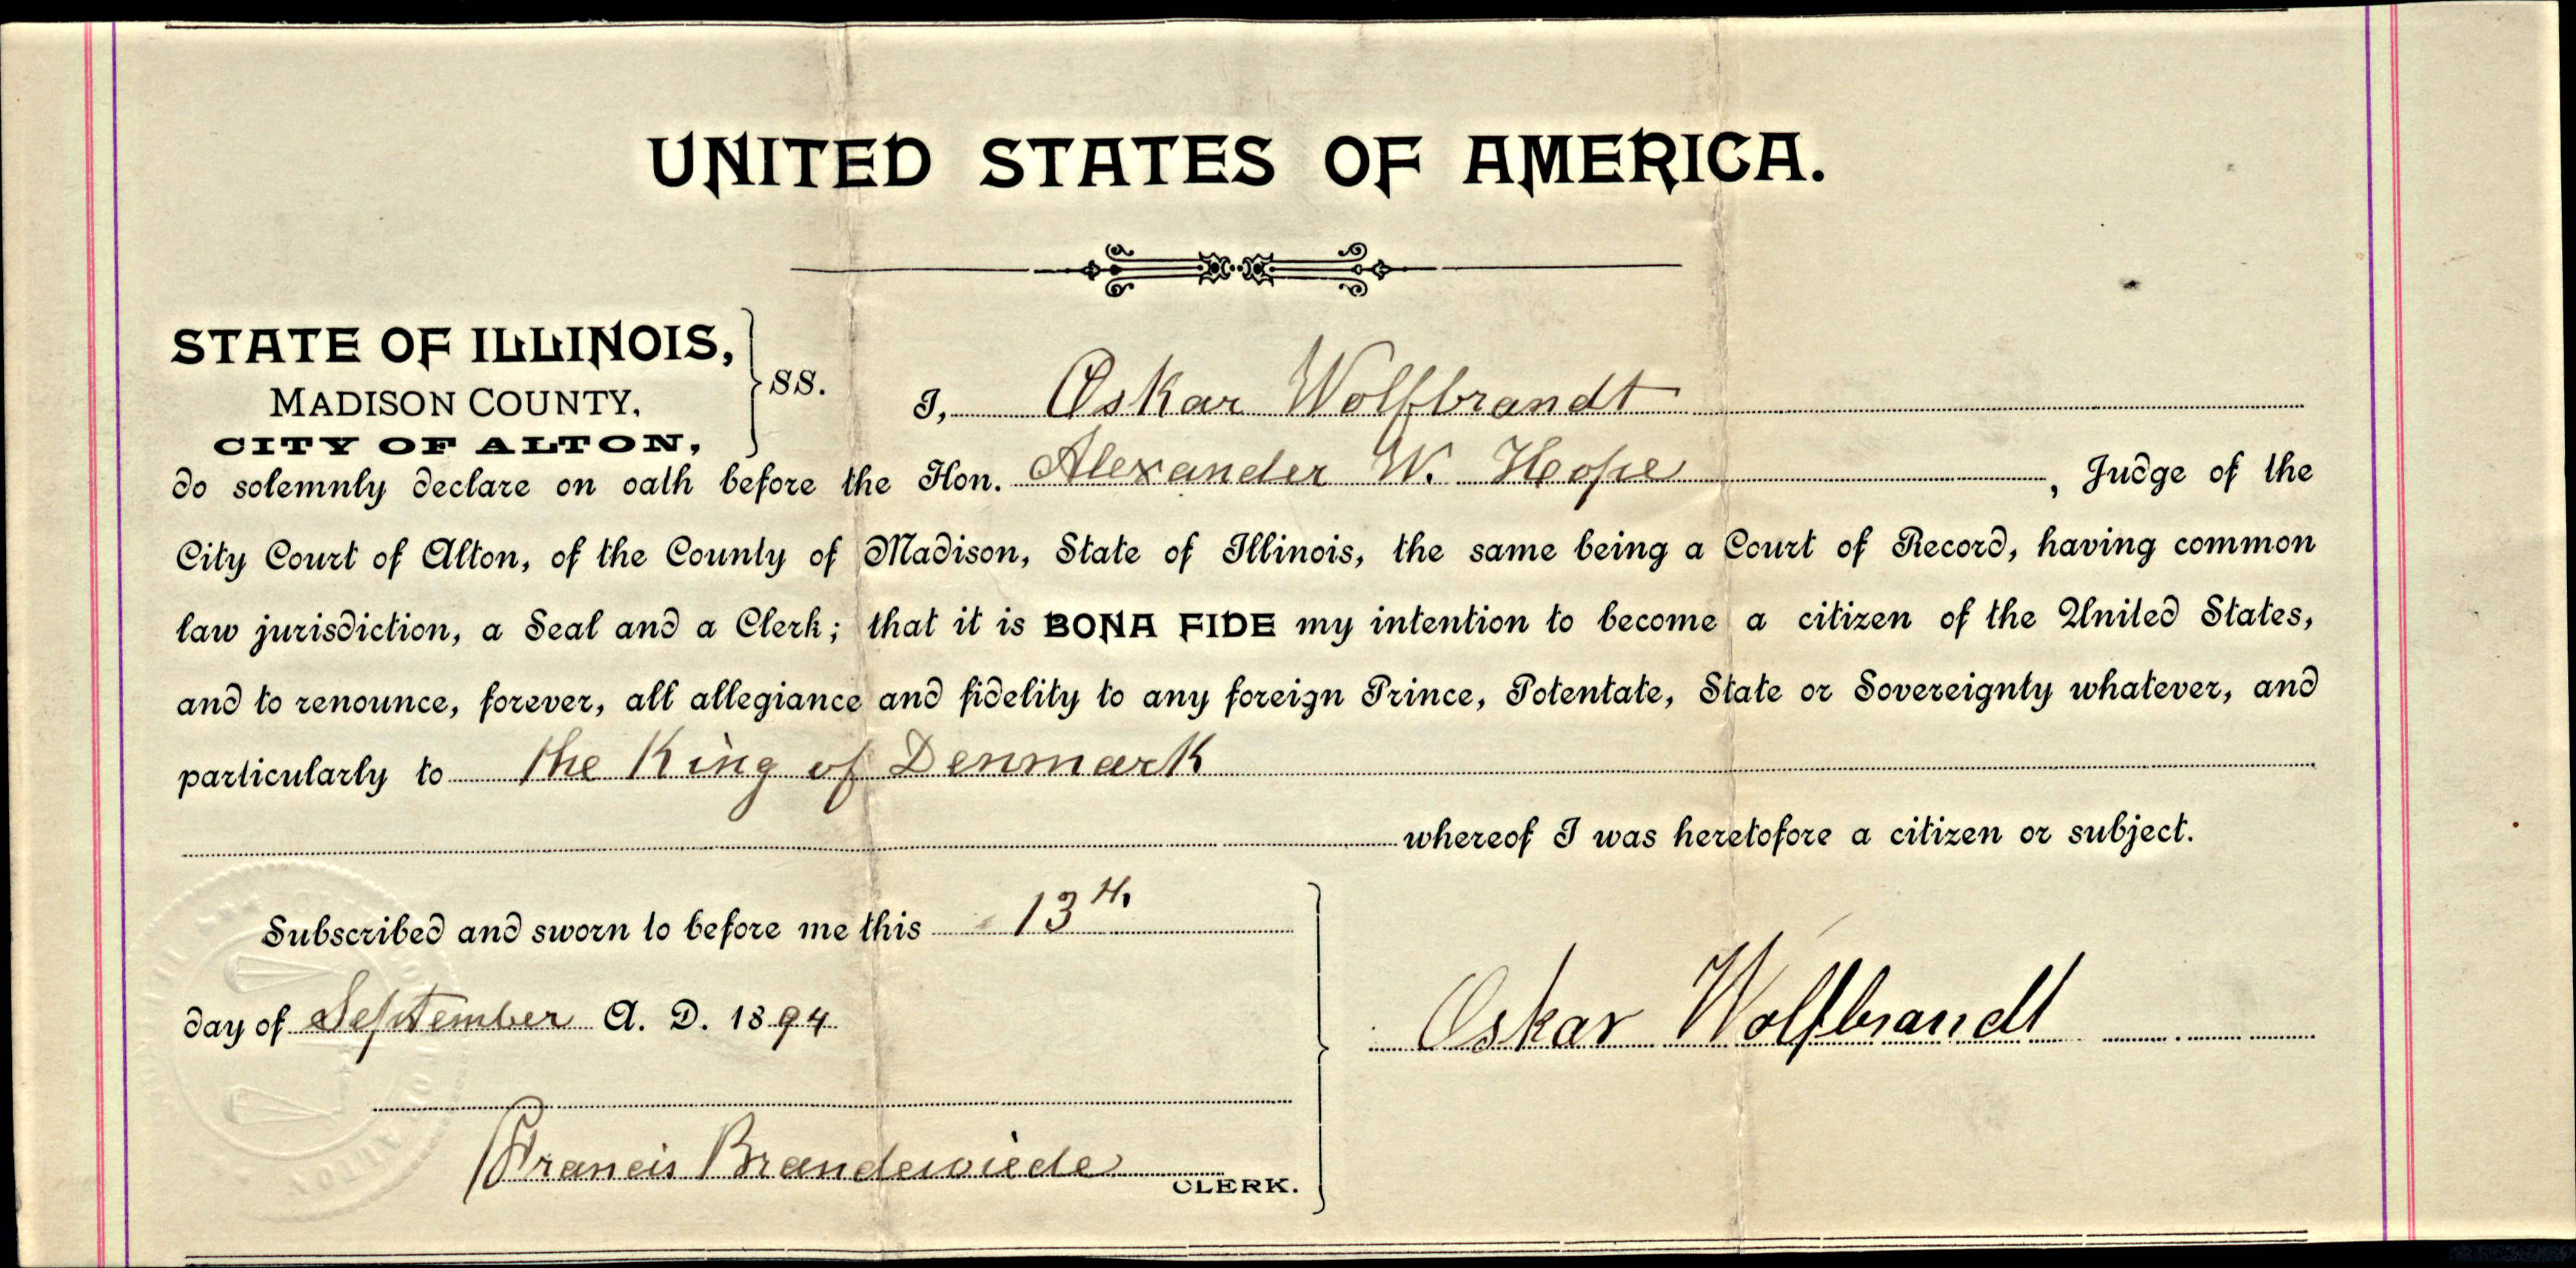 UNITED STATES OF AMERICA.
STATE OF ILLINOIS,
MADISON COUNTY,
CITY OF ALTON,
SS.
I, Oskar Wolfbrandt
do solemnly declare on oath before the Hon. Alexander W. Hope, Judge of the
City Court of Alton, of the County of Madison, State of Illinois, the same being a Court of Record, having common
law jurisdiction, a Seal and a Clerk; that it is BONA FIDE my intention to become a citizen of the United States,
and to renounce, forever, all allegiance and fidelity to any foreign Prince, Potentate, State or Sovereignty whatever, and
particularly to the King of Denmark
whereof I was heretofore a citizen or subject.
Subscribed and sworn to before me this 13th
day of September A. D. 1894
Oskar Wolfbrandt
Francis Brandewiede
CLERK.